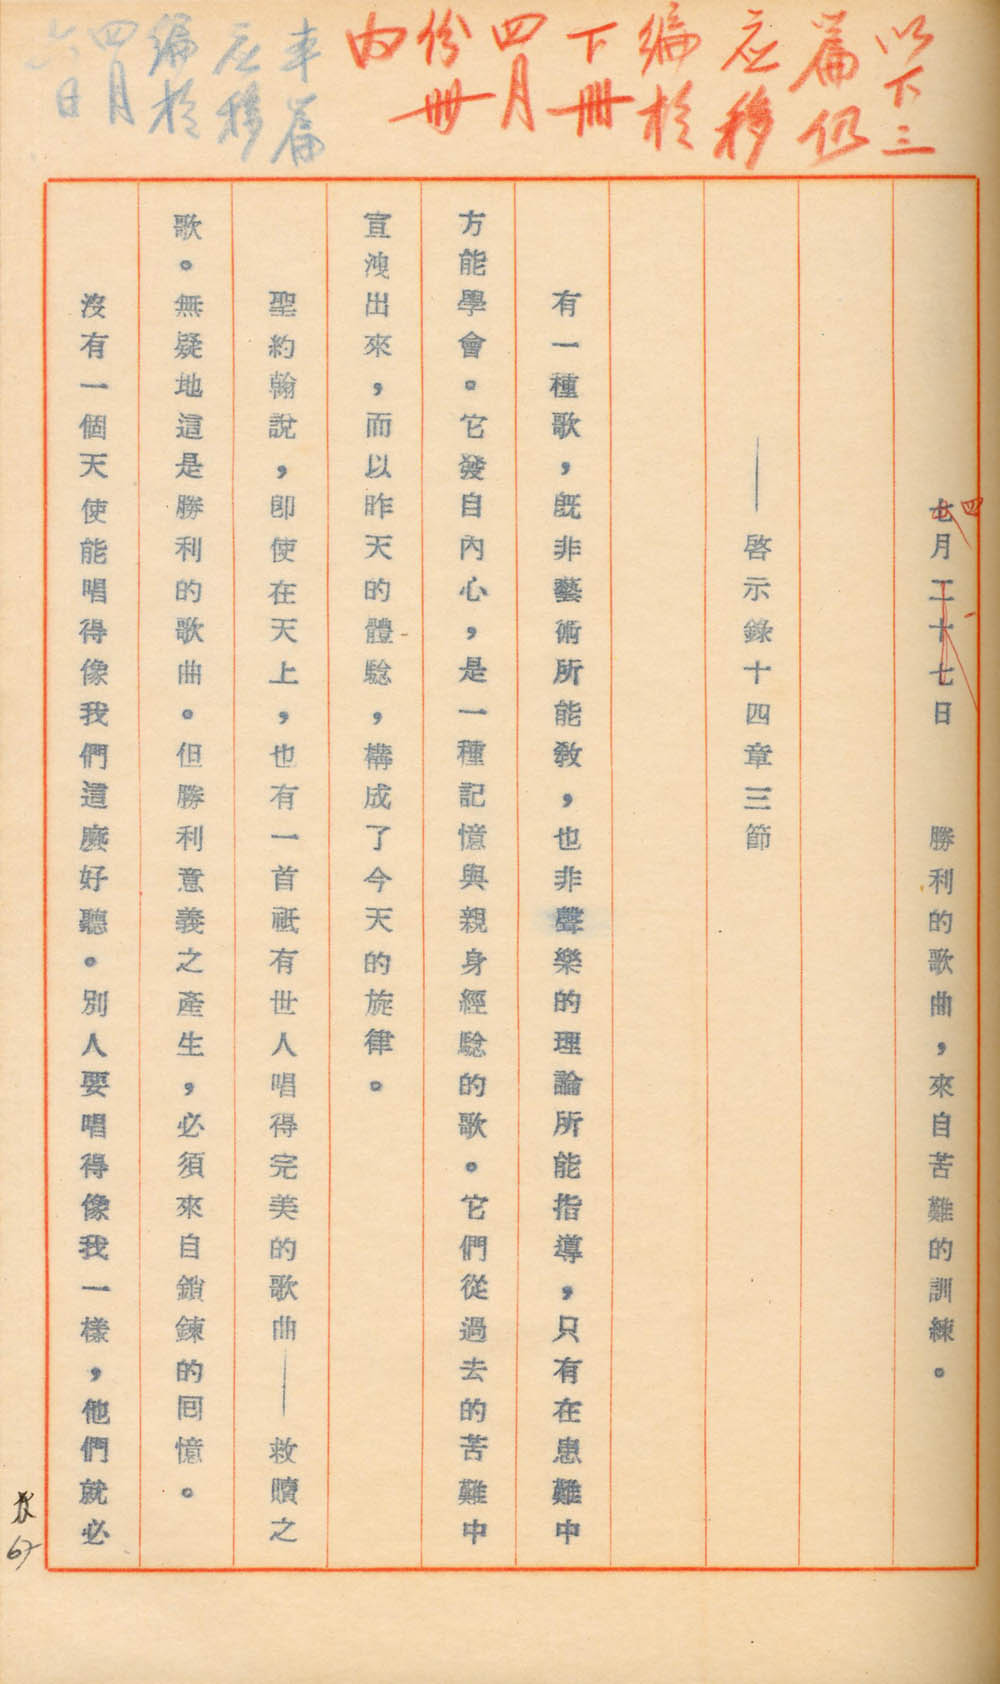 以下三
篇仍
应移
編於
下冊
四月
份冊
內
本篇
应移
編於
四月
六日
四
七月二十七日　勝利的歌曲，來自苦難的訓練。
——啓示錄十四章三節
有一種歌，旣非藝術所能敎，也非聲樂的理論所能指導，只有在患難中
方能學會。它發自內心，是一種記憶與親身經騐的歌。它們從過去的苦難中
宣洩出來，而以昨天的體騐，構成了今天的旋律。
聖約翰說，卽使在天上，也有一首祗有世人唱得完美的歌曲——救贖之
歌。無疑地這是勝利的歌曲。但勝利意義之產生，必須來自鎖鍊的囘憶。
沒有一個天使能唱得像我們這麽好聽。別人要唱得像我一樣，他們就必